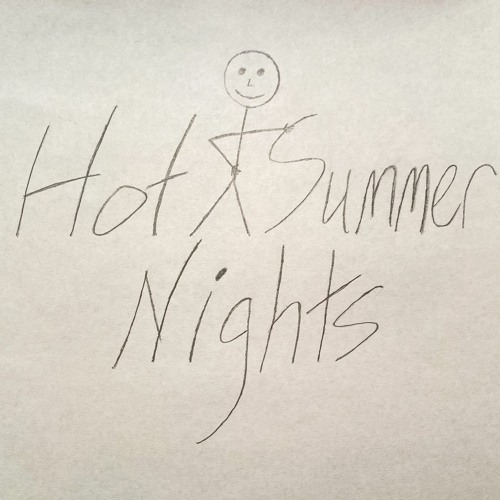 Hot Summer
Nights